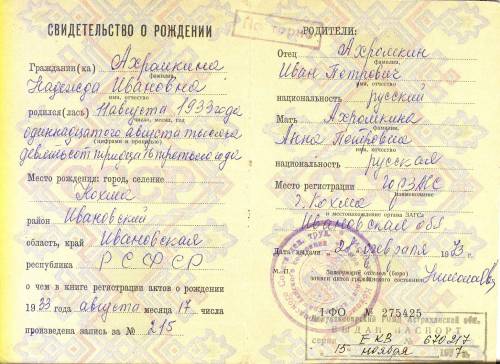 СВИДЕТЕЛЬСТВО О РОЖДЕНИИ
Повторное
Гражданин(ка) Ахромкина
фамилия,
Надежда Ивановна
имя, отчество
родился(лась) 11 августа 1933 года
число, месяц, год
одиннадцатого августа тысяча
(цифрами и прописью)
девятьсот тридцать третьего года
Место рождения: город, селение
Кохма
район Ивановский
область, край Ивановская
республика РСФСР
о чем в книге регистрации актов о рождении
1933 года августа месяца 17 числа
произведена запись за № 215
РОДИТЕЛИ:
Отец Ахромкин
фамилия,
Иван Петрович
имя, отчество
национальность русский
Мать Ахромкина
фамилия,
Анна Петровна
имя, отчество
национальность русская
Место регистрации горЗАГС
наименование
г. Кохма
и местонахождение органа ЗАГСа
Ивановская обл
Дата выдачи февраля 1973 г.
М. П. Заведующий отделом (бюро)
записи актов гражданского состояния
I-ФО № 275425
Астраханской обл.
ВЫДАН ПАСПОРТ
серия № 670217
15 ноября